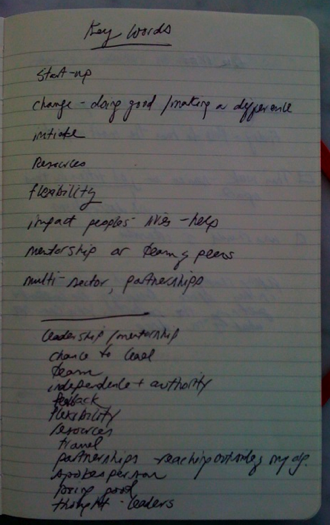 Key Words
Start-up
change - doing good / making a difference
initiate
Resources
flexibility
impact peoples' lives - help
mentorship or team of peers
multi-sector, partnerships
leadership / mentorship
chance to lead
team
independence + authority
feedback
flexibility
resources
travel
partnerships - reaching outside my
spokesperson
doing good
thought-leaders